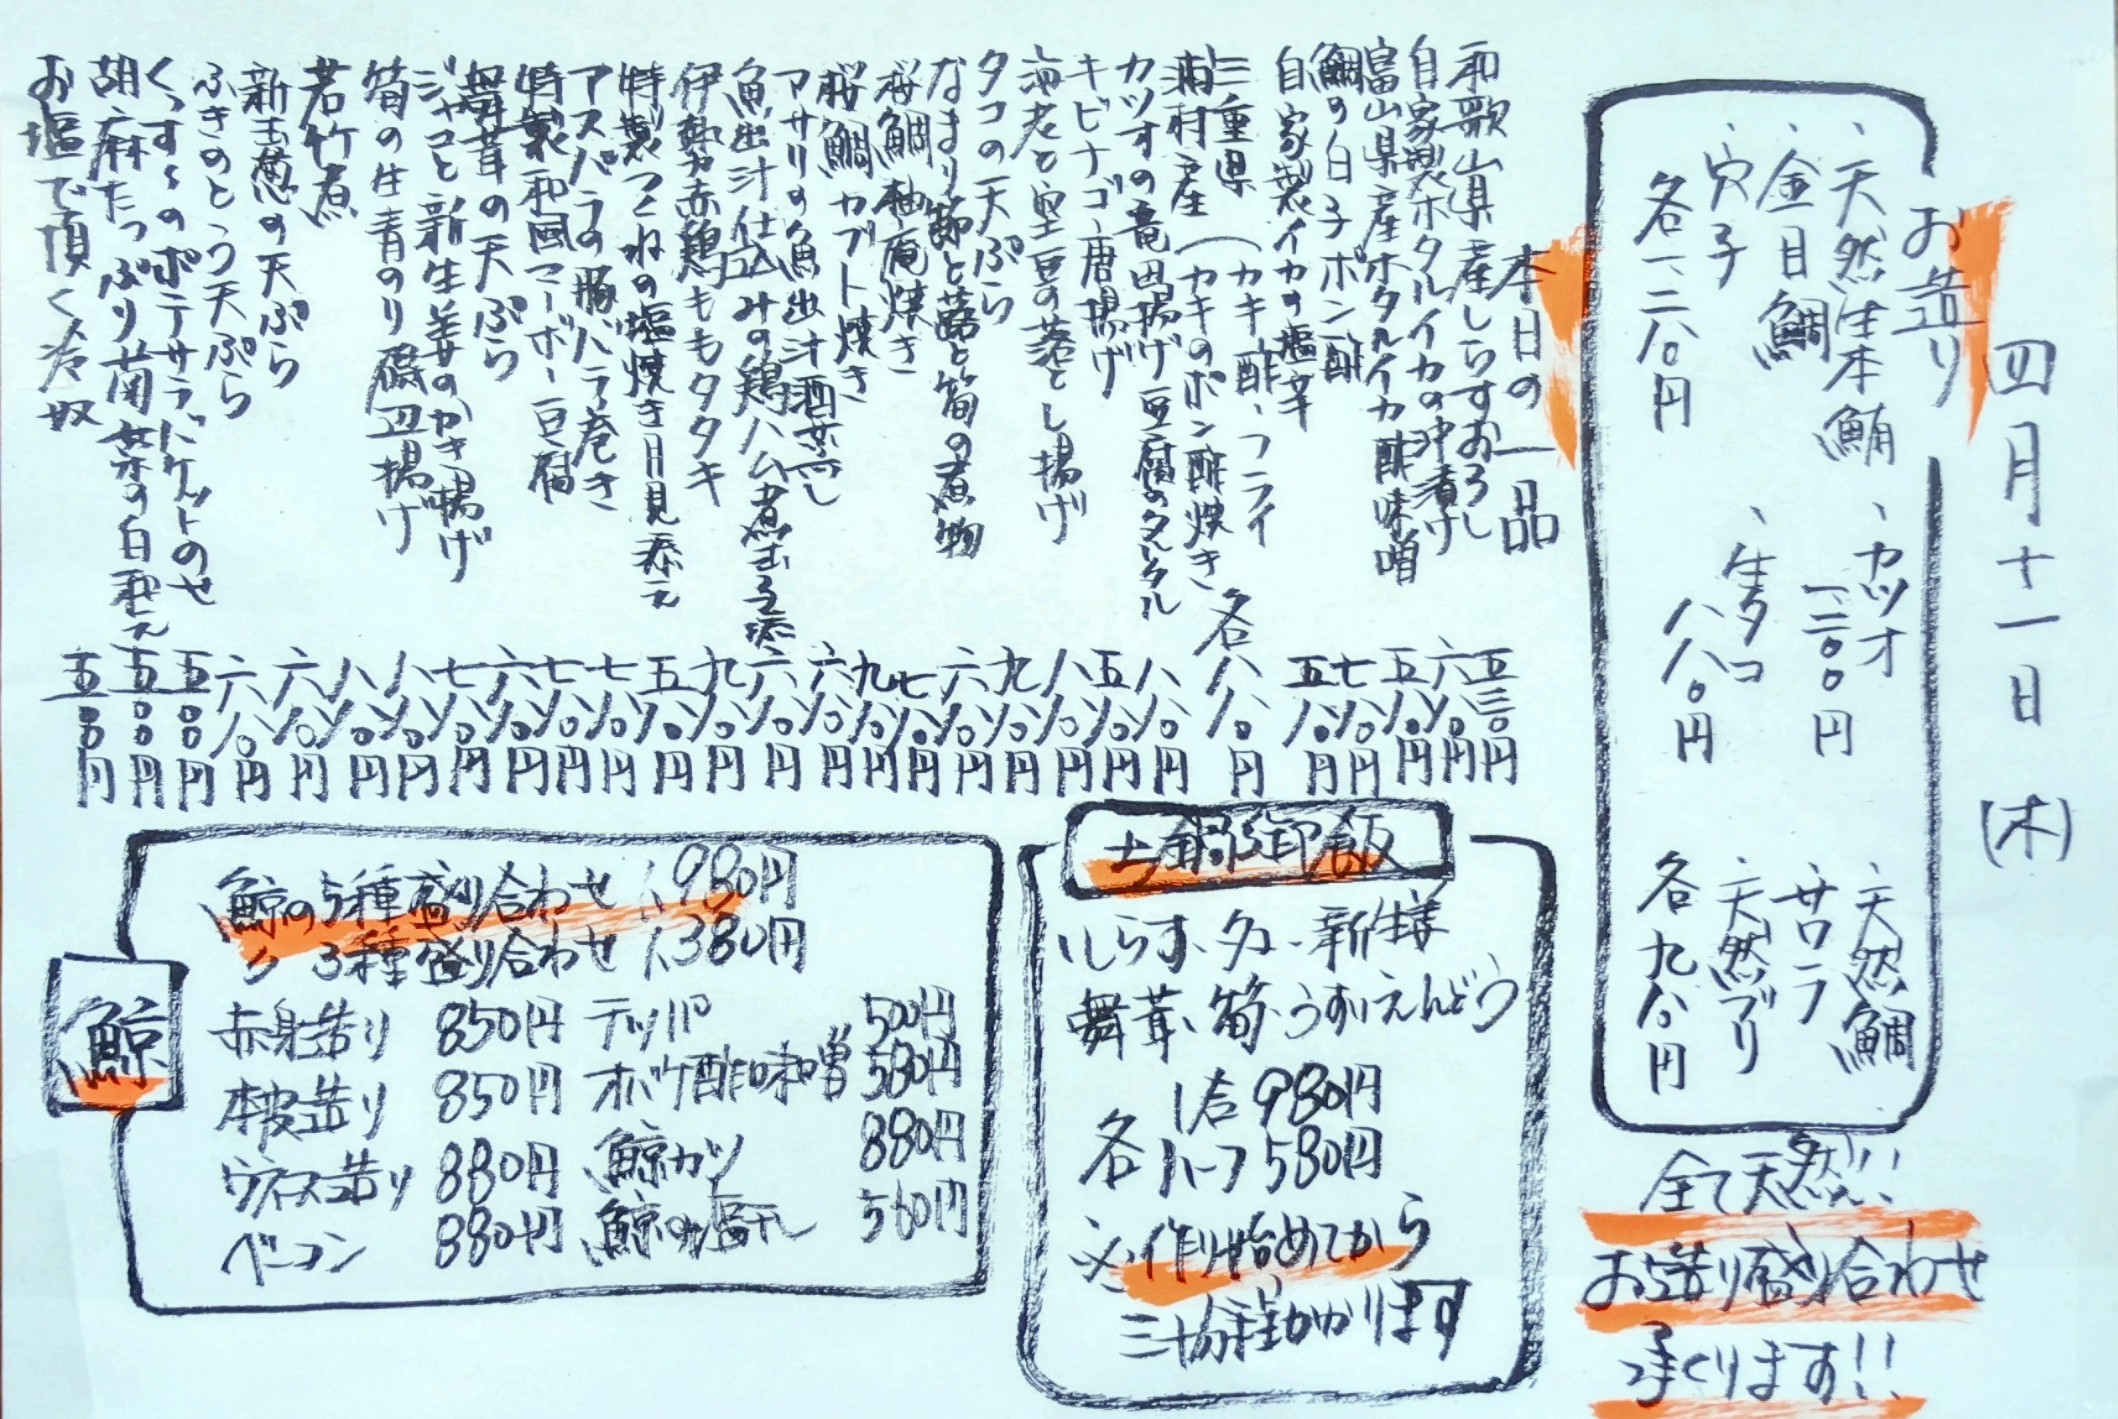 四月十一日(木)
お造り
、天然生本鮪
、金目鯛
、穴子
各一、二八〇円
、カツオ
一、一〇〇円
、生タコ
八八〇円
、天然鯛
、サワラ
、天然ブリ
各九八〇円
全て天然!!
お造り盛り合わせ
承くります!!
本日の一品
和歌山県産しらすおろし 五三〇円
自家製ホタルイカの沖漬け 六八〇円
富山県産ホタルイカ酢味噌 五八〇円
鯛の白子ポン酢 七八〇円
自家製イカの塩辛 五八〇円
三重県
浦村産(カキ酢、フライ
(カキのポン酢焼き 各八八〇円
カツオの竜田揚げ豆腐のタルタル 八八〇円
キビナゴ唐揚げ 五八〇円
海老と空豆の落とし揚げ 八八〇円
タコの天ぷら 九八〇円
なまり節と蕗と筍の煮物 六八〇円
桜鯛柚庵焼き 七八〇円
桜鯛カブト焼き 九八〇円
アサリの魚出汁酒蒸し 六八〇円
魚出汁仕込みの鶏ハム煮玉子添え 六八〇円
伊勢赤鶏ももタタキ 九八〇円
特製つくねの塩焼き月見添え 五八〇円
アスパラの豚バラ巻き 七八〇円
特製和風マーボー豆腐 七八〇円
舞茸の天ぷら 六八〇円
ジャコと新生姜のかき揚げ 七八〇円
筍の生青のり磯辺揚げ 八八〇円
若竹煮 八八〇円
新玉葱の天ぷら 六八〇円
ふきのとう天ぷら 六八〇円
くっすんのポテサラバケットのせ 五〇〇円
胡麻たっぷり菊菜の白和え 五〇〇円
お塩で頂く冷奴 五〇〇円
土鍋御飯
しらす、タコ、新生姜
舞茸、筍、うすいえんどう
各
1合 980円
ハーフ 580円
※作り始めてから
三十分程かかります
鯨
鯨の5種盛り合わせ 1,980円
〃 3種盛り合わせ 1,380円
赤身造り 850円 テッパ 500円
本皮造り 850円 オバケ酢味噌 580円
ウネス造り 880円 鯨カツ 880円
ベーコン 880円 鯨の塩干し 560円